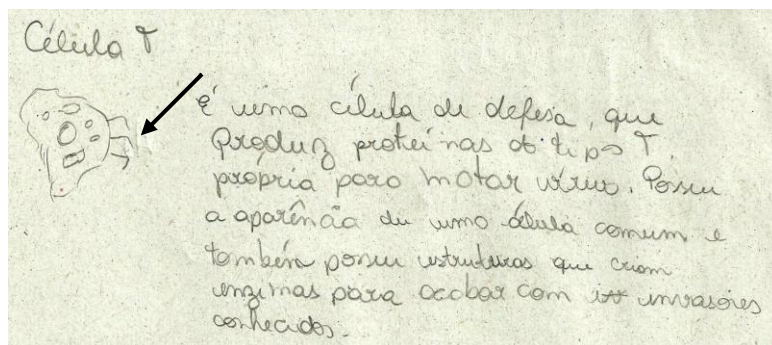 Célula T
É uma célula de defesa, que
produz proteínas do tipo T,
própria para matar vírus. Possui
a aparência de uma célula comum e
também possui estruturas que criam
enzimas para acabar com invasores
conhecidos.